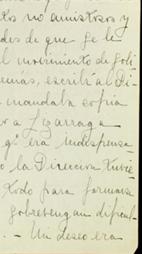 tos no amistosos y
des de que se le
l movimiento de poli
emás, escribí al Di-
mandaba copia
r a Lizarraga
q. era indispensa
o la Directiva hubie
todo para formar
sobrevengan dificul-
- Mi deseo era